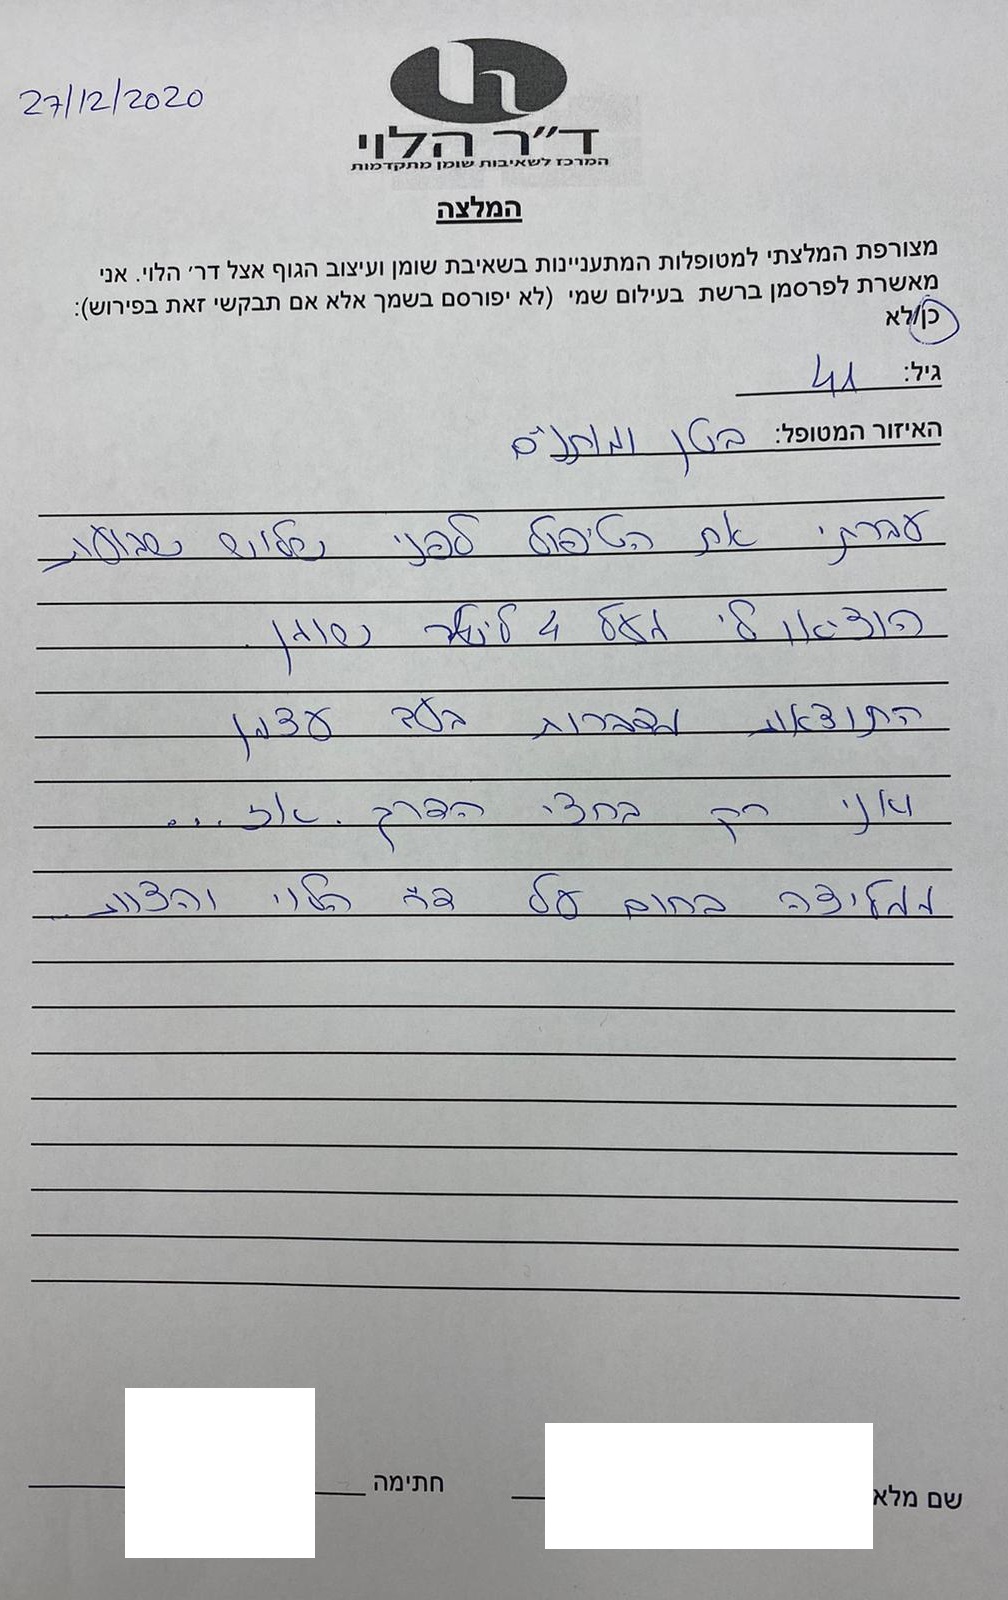 27/12/2020
ד"ר הלוי
המרכז לשאיבות שומן מתקדמות
המלצה
מצורפת המלצתי למטופלות המתעניינות בשאיבת שומן ועיצוב הגוף אצל דר' הלוי. אני
מאשרת לפרסמן ברשת בעילום שמי (לא יפורסם בשמך אלא אם תבקשי זאת בפירוש):
כן/לא
גיל: 41
האיזור המטופל: בטן ומותניים
עברתי את הטיפול לפני שלוש שבועות
הוציאו לי מעל 4 ליטר שומן.
התוצאות מדברות בעד עצמן
ואני רק בחצי הדרך. אז...
ממליצה בחום על ד"ר הלוי והצוות.
שם מלא
חתימה